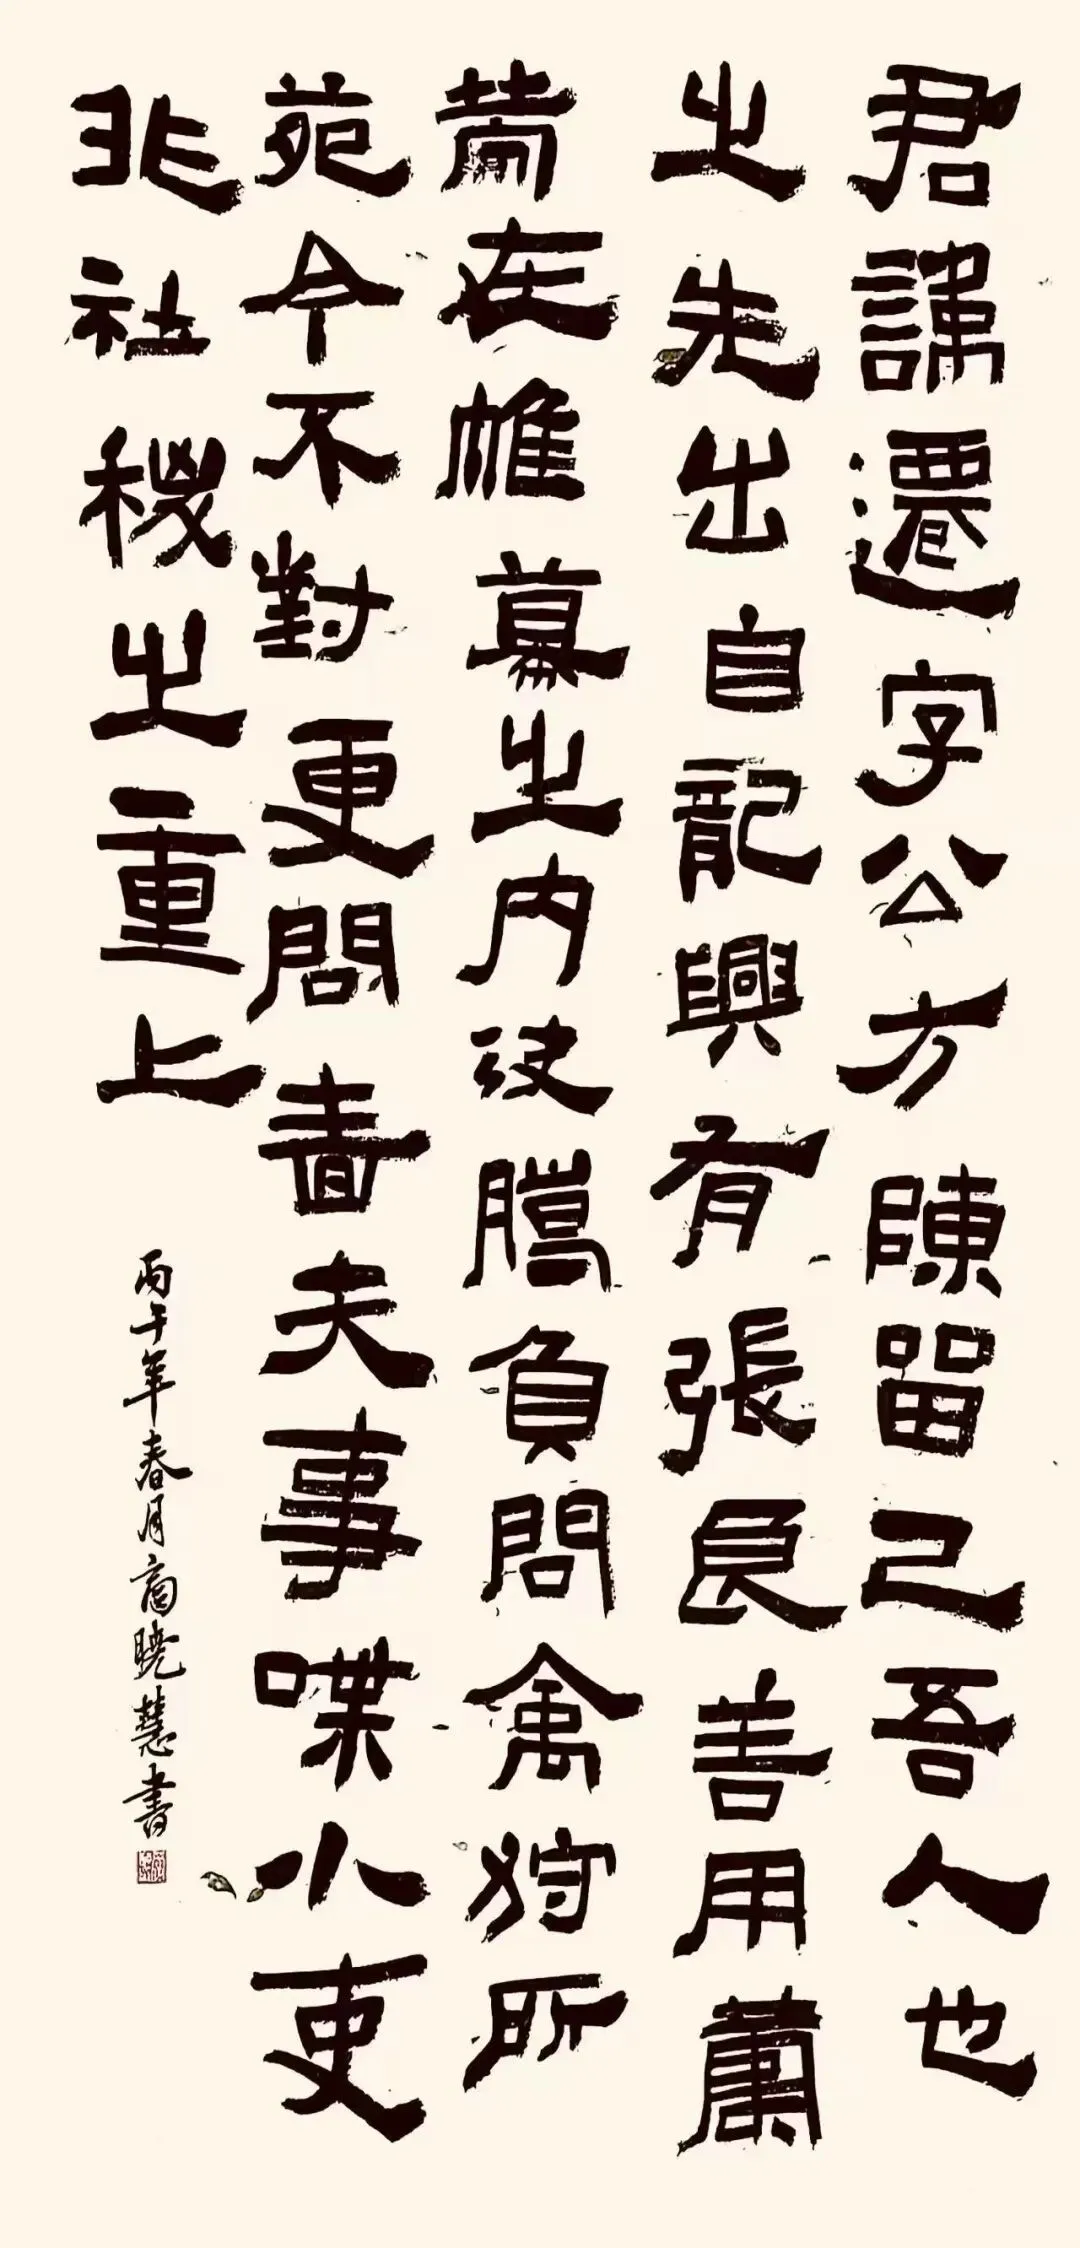 君諱遷字公方陳留己吾人也
之先出自龍興有張良善用籌
策在帷幕之内決勝負問禽狩所
苑令不對更問嗇夫事喋小吏
非社稷之重上
丙午年春月商曉慧書